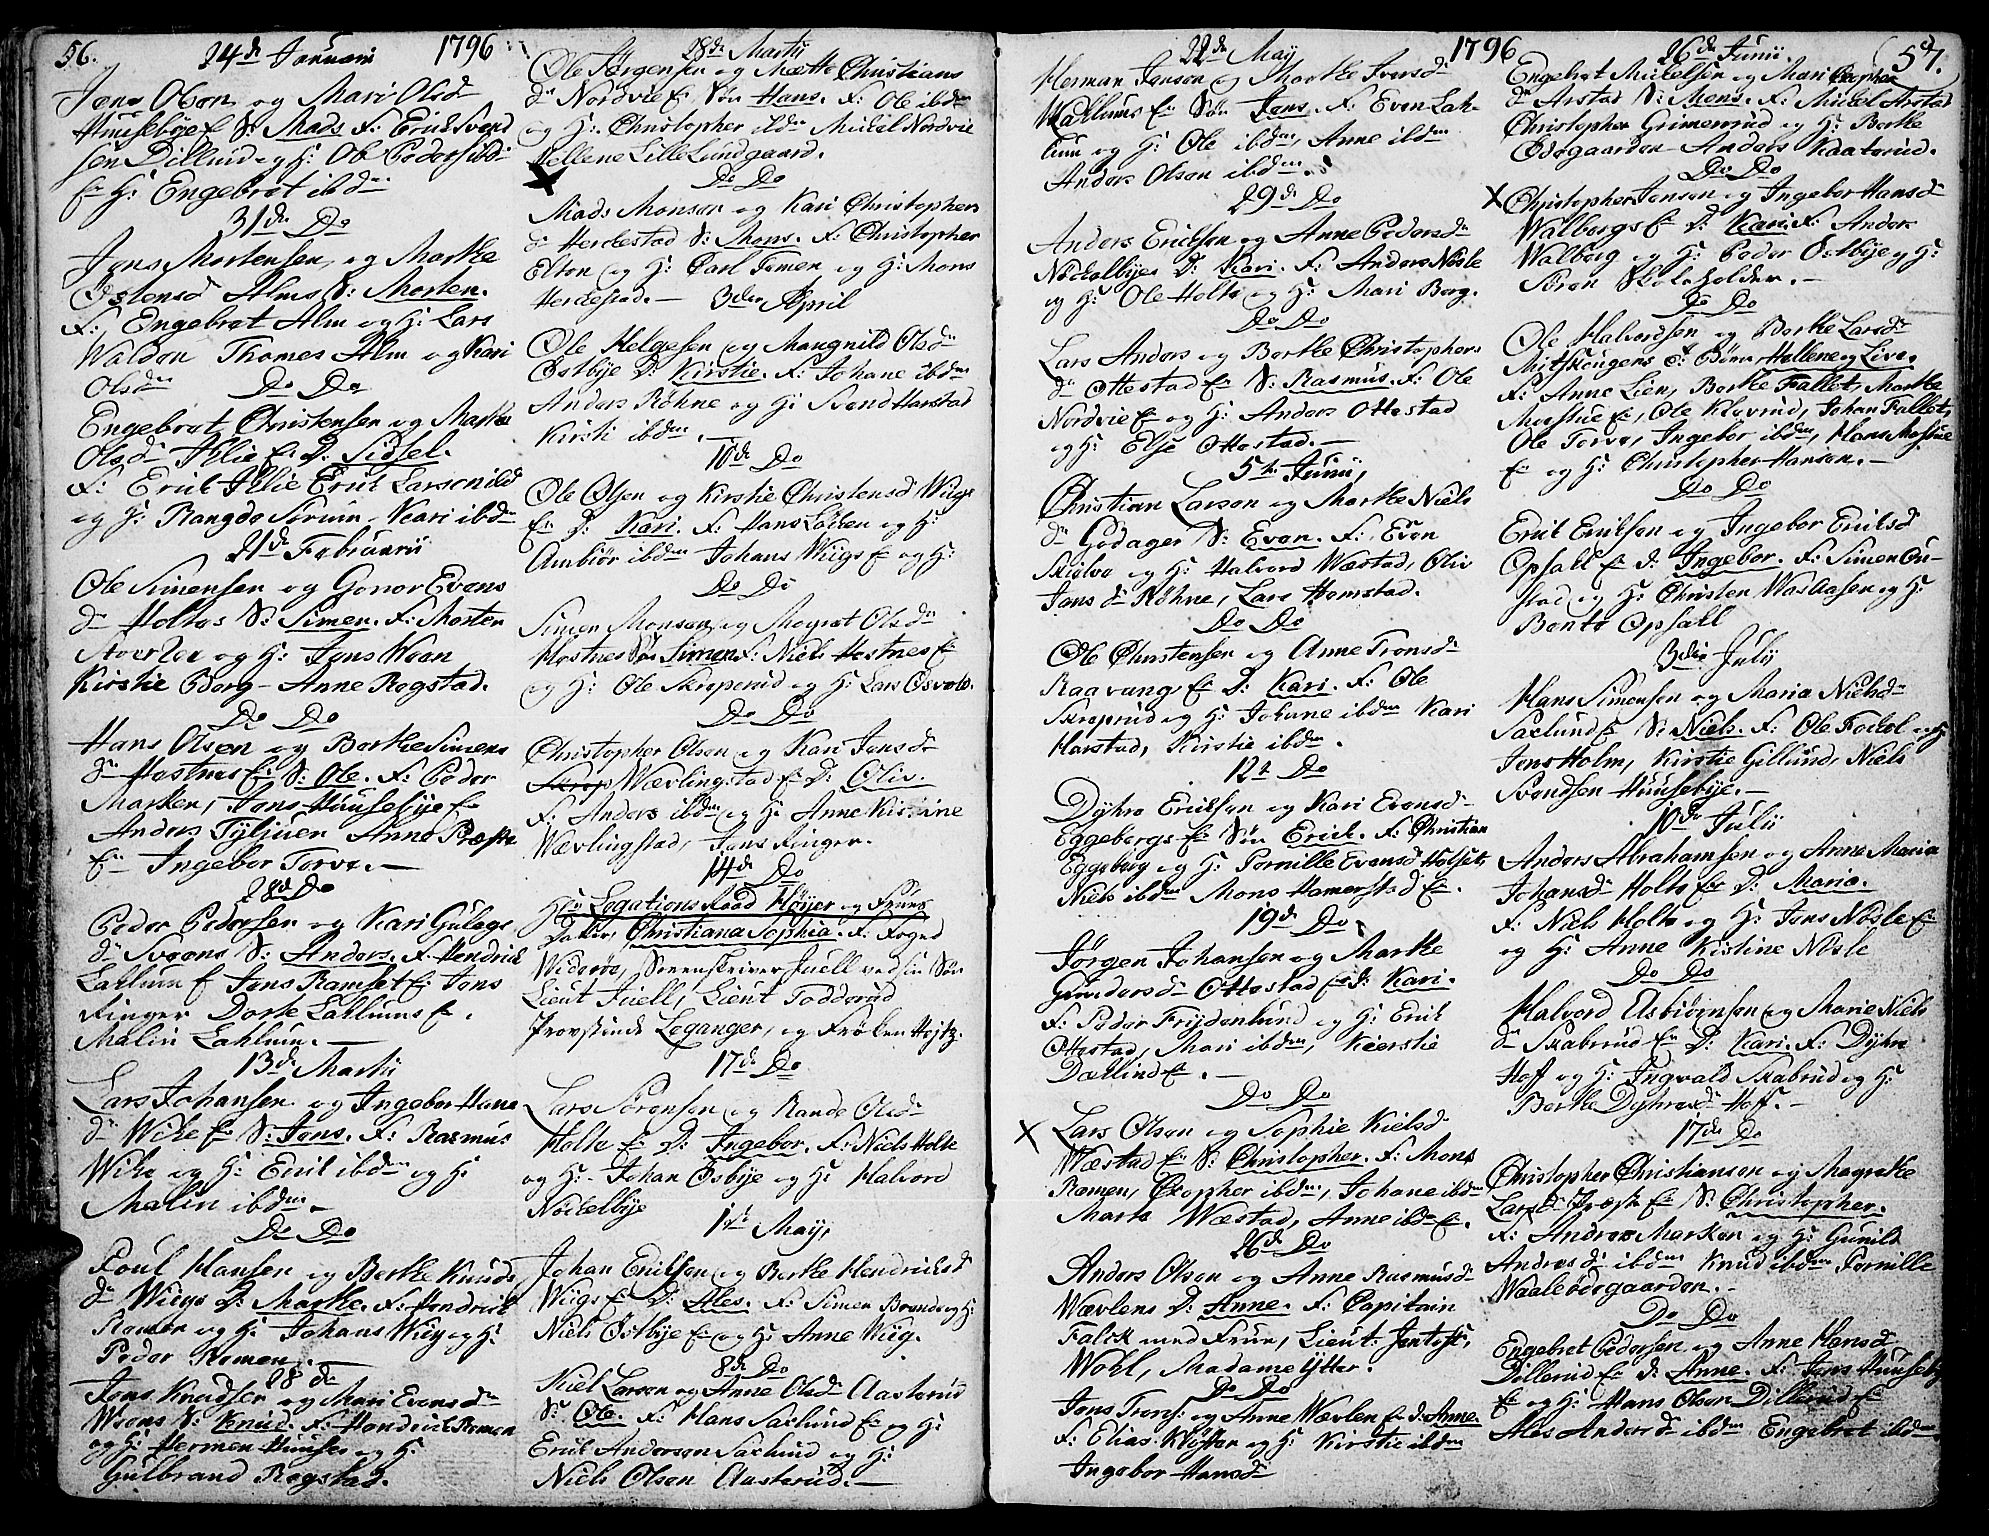 56.
24de Januarii 1796
Jens Olsen og Mari Olsd
Huusebye S: Mads. F: Erik Svend
sen Dillund og H: Ole Peders ibd
H: Engebret ibdm
31de Do
Jens Mortensen og Marthe
Ostensd Alms S: Morten.
F: Engebret Alm og H: Lars
Walden Thomes Alm og Kari
Olsdn
Do Do
Engebret Christensen og Marthe
Olsdn Ilie E. D. Sidsel.
F: Erik Ilie Erik Larsen
og H: Rangdo Kari ibdm
21de Februarii
Ole Simensen og Gonor Evens
dn Holtes S: Simen. F: Morten
og H: Jens Hoen
Kirstie Berg - Anne Rogstad.
Do Do
Hans Olsen og Berthe Simens
dn Hostnes E: S: Ole. F: Peder
Marken, Jens Huusebye E
Anders Tyljuen Anne Præste
E Ingebor Torve.
28de Do
Peder Pedersen og Kari Gulags
dn Sveens S: Anders. F: Hendrick
Lahlum E Jens Ramset E: Jens
Finger Dorte Lahlums E.
Malin Lahlum.
13de Martii
Lars Johansen og Ingebor Hans
dn Wike E S: Jens. F: Rasmus
Wike og H: Erik ibdm og H:
Malin ibdm
Do Do
Poul Hansen og Berthe Knuds
dn Wiigs D: Marthe. F: Hendrick
Romen og H: Johans Wiig og H:
Peder Romen.
28de
Jens Knudsen og Mari Evensdn
Weens S: Knud. F: Hendrick Romen
og H: Hermen Huuser og H:
Gulbrand Rogstad.
28de Martii
Ole Jørgensen og Mætte Christians
dn Nordvie E Søn Hans. F: Ole ibdm
og H: Christopher ibdm Mickel Nordvie
Hellene Lille Lundgaard.
Do Do
Mads Monsen og Kari Christophers
dn Herckestad S: Mons. F: Christopher
Elton og H: Carl Tomen og H: Mons
Herckestad. - 3die April
Ole Helgesen og Mangnild Olsdn
Østbye D: Kirstie. F: Johane ibdm
Anders Røhne og H: Svend Harstad
Kirsti ibdm.
10de Do
Ole Olsen og Kirstie Christensd Wiigs
E D: Kari. F: Hans Løken og H:
Ambiør ibdm Johans Wiigs E og H:
Do Do
Simen Monsen og Magret Olsdn
Hostnes Søn Simen F: Niels Hostnes E
og H: Ole Skreperud og H: Lars Osvold.
Do Do
Christopher Olsen og Kari Jensdn
Wævlingstad E D: Oliv.
F: Anders ibdm og H: Anne Kirstine
Wævlingstad, Jens Finger.
14de Do
Hr Legations Raad Høijer og Frues
Datter Christiana Sophia. F: Foged
Wederøe, Sorenskriver Juell ved sin Søn
Lieut Juell, Lieut Todderud
Provstinde Leganger, og Frøken
17de Do
Lars Sørensen og Rande Olsdn
Holte E D: Ingebor. F: Niels Holte
og H: Johan Østbye og H: Halvord
Nockelbye
1ste May,
Johan Erichsen og Berthe Hendriksd
Wiigs E D: Ales. F: Simen Brends og H:
Niels Østbye E og H: Anne Wiig.
8de Do
Kiel Larsen og Anne Olsdn Aasterud
S: Ole. F: Hans Saxlund E og H:
Erik Andersen Saxlund og H:
Niels Olsen Aasterud.
22de May 1796
Herman Jensen og Marthe Iversdn
Wallums E Søn Jens. F: Even Lah-
lum og H: Ole ibdm, Anne ibdm
Anders Olsen ibdm
29de Do
Anders Ericksen og Anne Pedersdn
Nockelbye D: Kari. F: Anders Nesle
og H: Ole Holte og H: Mari Berg.
Do Do
Lars Anders og Berthe Christophers
dn Ottestad E S: Rasmus. F: Ole
Nordvie E og H: Anders Ottestad
og H: Else Ottestad.
5te Junii,
Christian Larsen og Marthe Niels
dn Godager S: Even. F: Even
Skiølve og H: Halvord Wæstad, Oliv
Jens dn Røhne, Lars Hemstad.
Do Do
Ole Christensen og Anne Tronsdn
Raavangs E D: Kari. F: Ole
Skreprud og H: Johane ibdm Kari
Harstad, Kirstie ibdm.
12te Do
Dyhre Ericksen og Kari Evensdn
Eggebergs E Søn Erick. F: Christian
Eggeberg og H: Pernille Evensd Holset,
Niels ibdm Mons Hamerstad E.
19de Do
Jørgen Johansen og Marthe
Gundersdn Ottestad E D: Kari.
F: Peder Frydenlund og H: Erik
Ottestad, Mari ibdm, Kierstie
Dællind E.
Do Do
Lars Olsen og Sophie Kielsdn
Wæstad E S: Christopher. F: Mons
Romen, Chopher ibdm, Johane ibdm
Marte Wæstad, Anne ibdm E.
26de Do
Anders Olsen og Anne Rasmusdn
Wævlens D: Anne. F: Capitain
Falck med Frue, Lieut. Jentoft,
Wohl, Madame Ytter.
Do Do
Jens Trons: og Anne Wævlen E D: Anne.
F: Elias Kløften og H: Kirstie ibdm
Ingebor Hansd
26de Junii. 57.
Engebret Mickelsen og Mari Chopher
dn Arstad S: Mons. F: Mickel Arstad
Christopher Grimerud og H: Berthe
Odegaarden Anders Kaaterud.
Do Do
Christopher Jensen og Ingebor Hansdn
Walbergs E D: Kari. F: Anders
Walberg og H: Peder Østbye og H:
Søren Skoleholder.
Do Do
Ole Halvordsen og Berthe Larsdn
Mitskougens E Børn Hellene og Live.
F: Anne Lien, Berthe Fallet, Marthe
Moestue E, Ole Kloverud, Johan Fallet,
Ole Torve, Ingebor ibdm, Hans Mostue
E og H: Christopher Hansen.
Do Do
Erik Eriksen og Ingebor Eriksd
Opsall E D: Ingebor. F: Simen Gu-
stad og H: Christen Waslaasen og H:
Bente Opsall
3die Julij
Hans Simensen og Maria Nielsdn
Saxlund E S: Niels. F: Ole Fockel og H:
Jens Holm, Kirstie Gillund, Niels
Svendsen Huusebye.
10de Julii
Anders Abrahamsen og Anne Maria
Johansdn Holts E D: Maria.
F: Niels Holte og H: Jens Nøsle E
og H: Anne Kistine Nøsle
Do Do
Halvord Esbiørnsen og Marie Niels
dn Skabrud E D: Kari. F: Dyhre
Hoff og H: Ingvald Skabrud og H:
Berthe Dyhresdn Hoff.
17de Do
Christopher Christiansen og Magrethe
Larsdn Præste E S: Christopher.
F: Andreas Marken og H: Gunild
Andreasdn ibdm Knud ibdm Pernille
Waaleødegaarden.
Do Do
Engebret Pedersen og Anne Hansdn
Dillerud E D: Anne. F: Jens Huuseby
E og H: Hans Olsen Dillerud E
Ales Andersdn ibdm Engebret ibdm